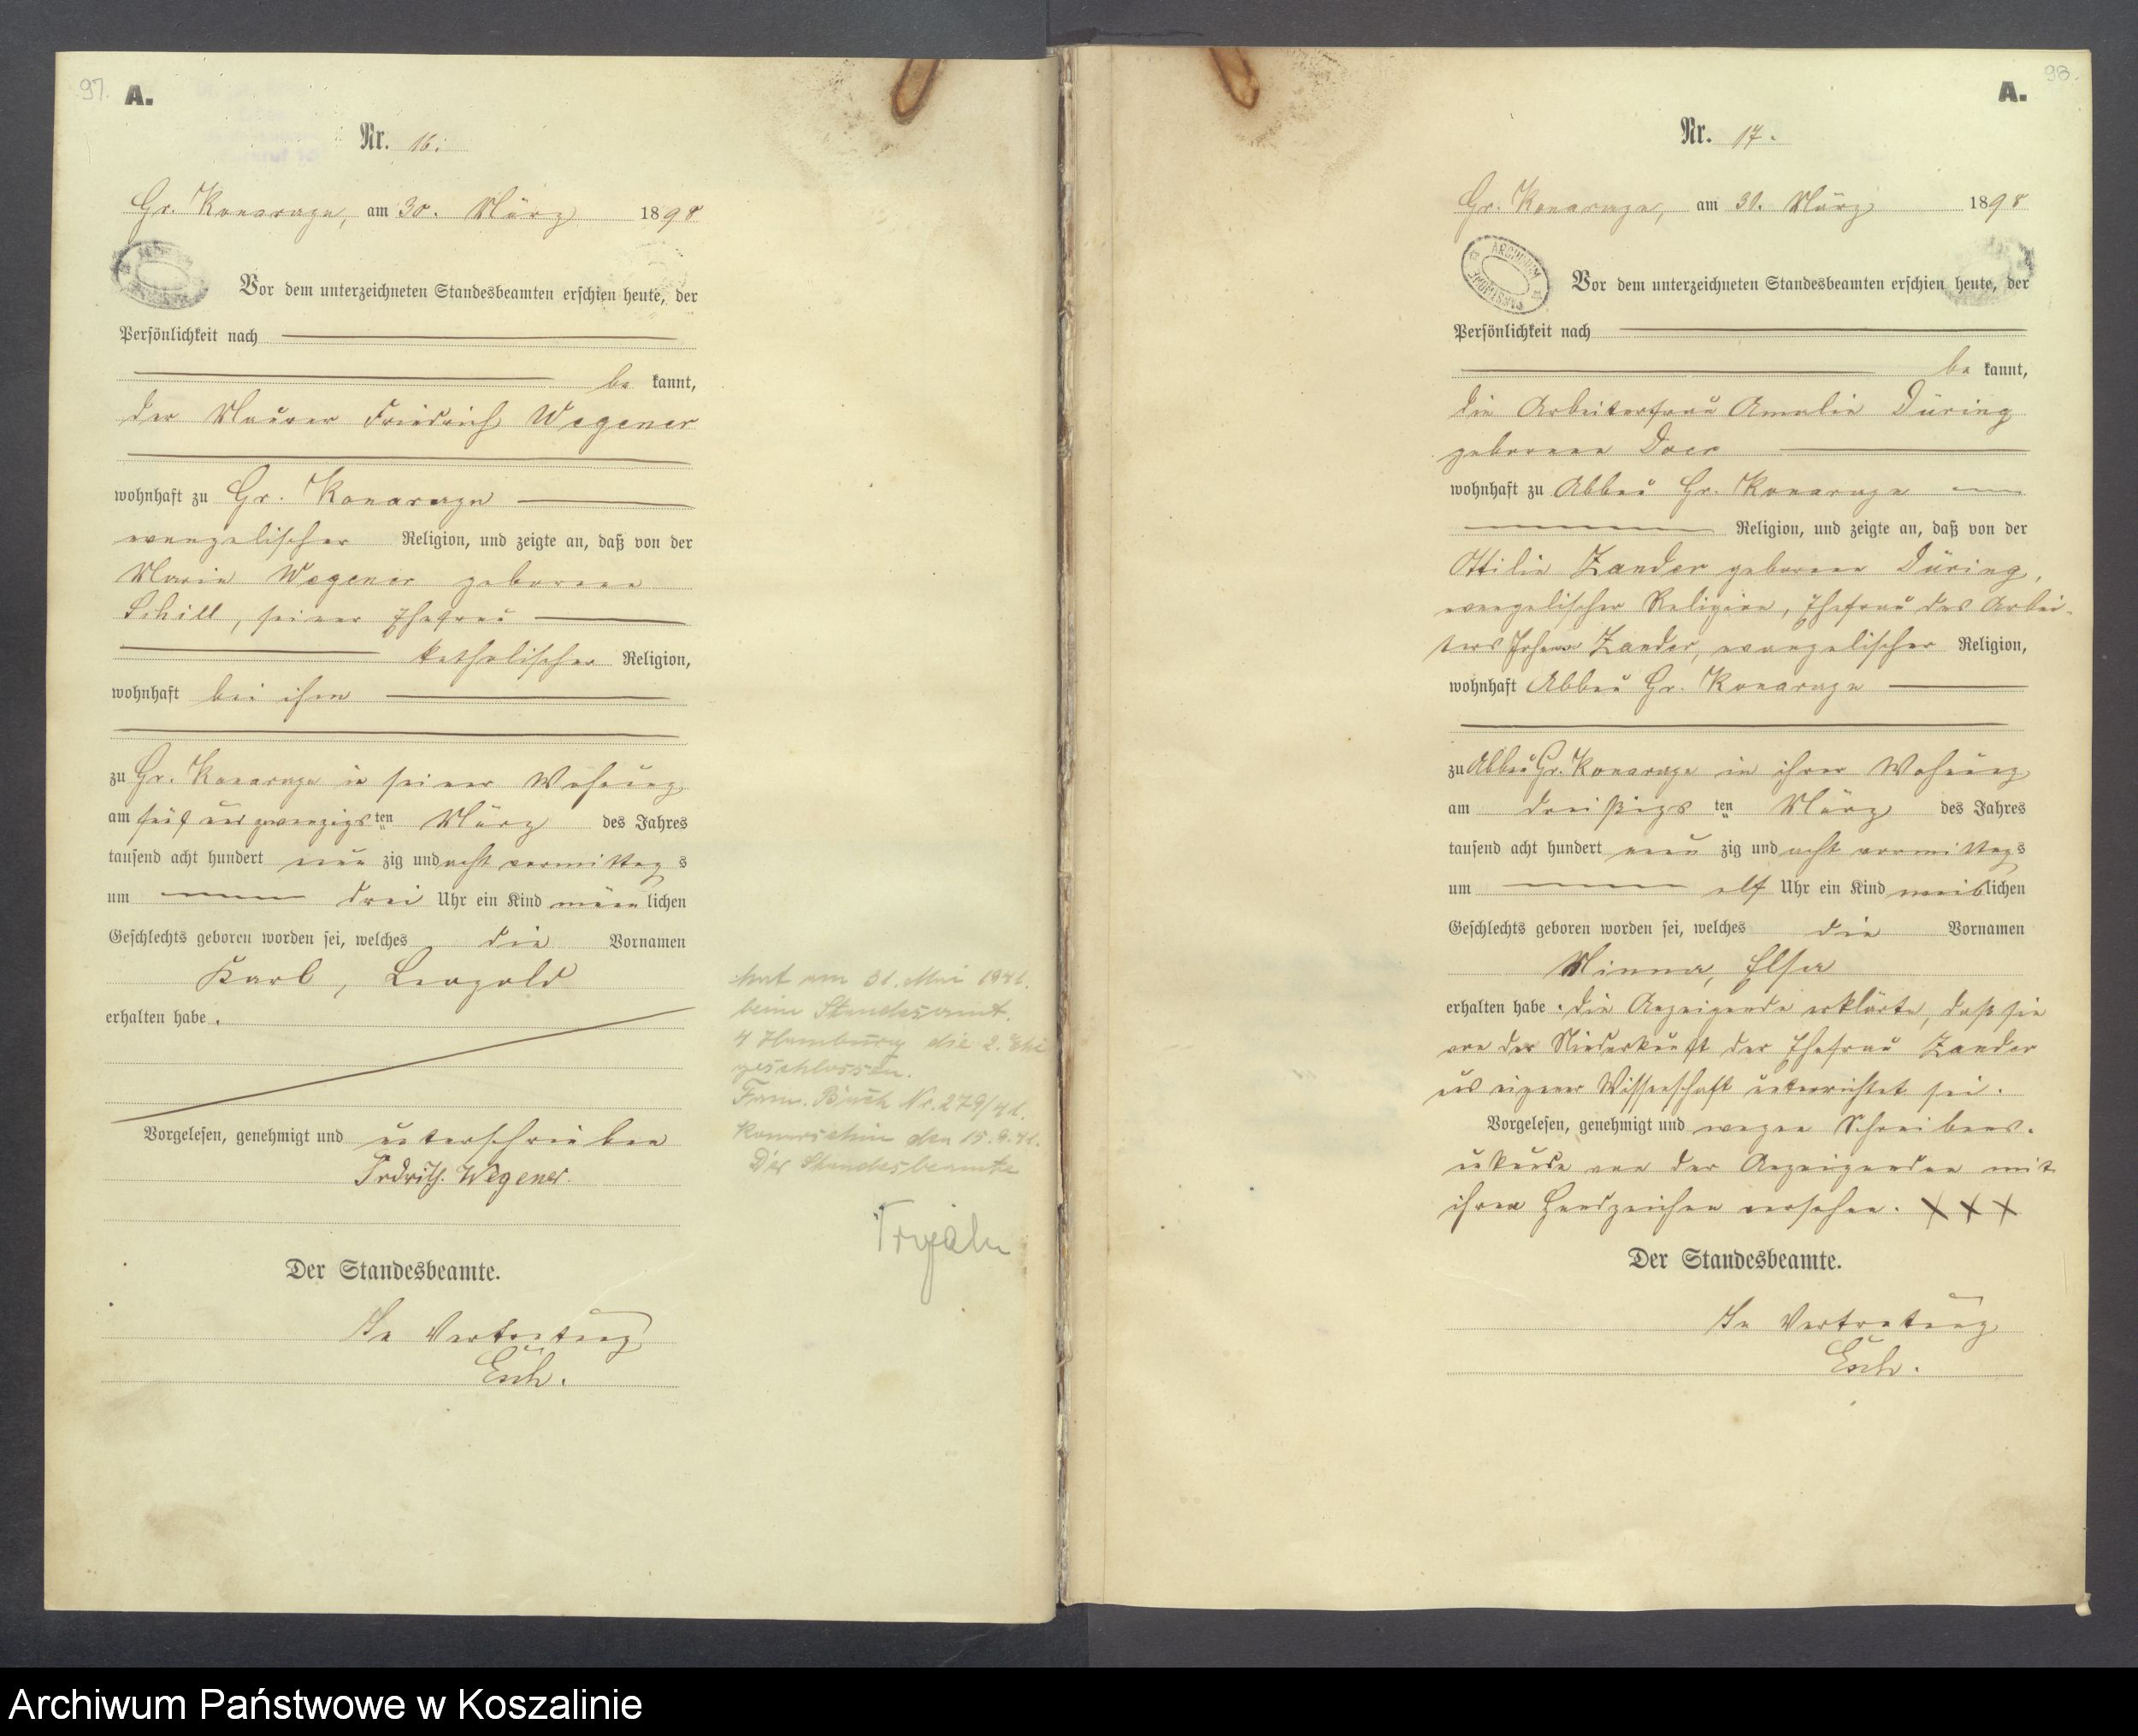 97.
A.
Nr. 16.
Gr. Konarczyn, am 30. März 1898
Vor dem unterzeichneten Standesbeamten erschien heute, der
Persönlichkeit nach
be kannt,
der Maurer Friedrich Wegener
wohnhaft zu Gr. Konarczyn
evangelischer Religion, und zeigte an, daß von der
Marie Wegener geborene
Schill, seiner Ehefrau
katholischer Religion,
wohnhaft bei ihm
zu Gr. Konarczyn in seiner Wohnung
am fünf und zwanzigs ten März des Jahres
tausend acht hundert neun zig und acht vormittag s
um drei Uhr ein Kind männ lichen
Geschlechts geboren worden sei, welches die Vornamen
Karl, Leopold
erhalten habe.
Vorgelesen, genehmigt und unterschrieben
Frdrich. Wegener.
Der Standesbeamte.
In Vertretung
Esch.
hat am 31. Mai 1941.
beim Standesamt.
4 Hamburg die 2. Ehe
geschlossen.
Fam. Buch Nr. 279/41.
den 15.9.41.
Der Standesbeamte
98.
A.
Nr. 17.
Gr. Konarczyn, am 30. März 1898
ARCHIWUM
Vor dem unterzeichneten Standesbeamten erschien heute, der
Persönlichkeit nach
be kannt,
die Arbeiterfrau Amalie Düring
geborene Doer
wohnhaft zu Abbau Gr. Konarczyn
Religion, und zeigte an, daß von der
Ottilie Zander geborene Düring,
evangelischer Religion, Ehefrau des Arbei-
ters Johann Zander, evangelischer Religion,
wohnhaft Abbau Gr. Konarczyn
zu Abbau Gr. Konarczyn in ihrer Wohnung
am dreißigs ten März des Jahres
tausend acht hundert neun zig und acht vormittag s
um elf Uhr ein Kind weib lichen
Geschlechts geboren worden sei, welches die Vornamen
Minna, Elsa
erhalten habe. Die Anzeigende erklärte, daß sie
von der Niederkunft der Ehefrau Zander
aus eigener Wissenschaft unterrichtet sei.
Vorgelesen, genehmigt und wegen Schreibens-
unkunde von der Anzeigenden mit
ihrem Handzeichen versehen. XXX
Der Standesbeamte.
In Vertretung
Esch.
Archiwum Państwowe w Koszalinie